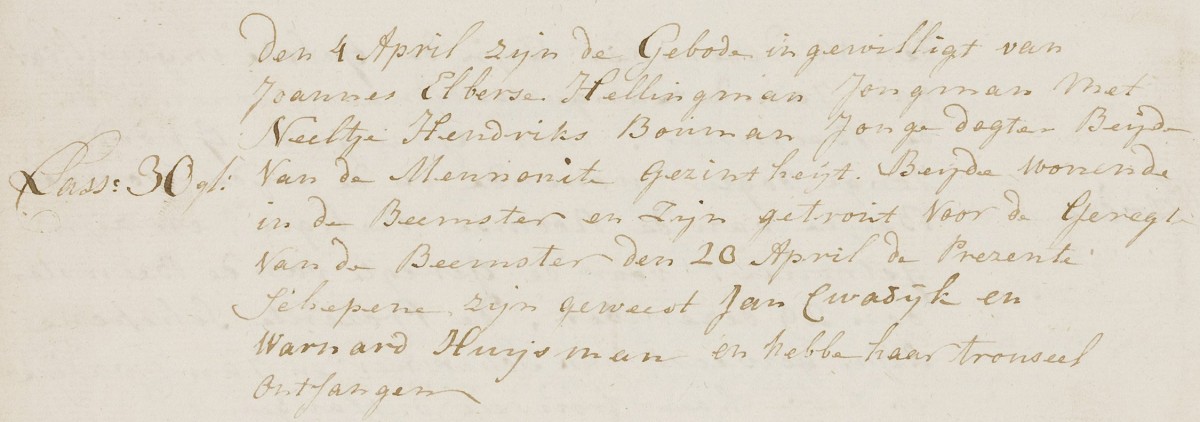 Den 4 April zijn de Gebode ingewilligt van
Joannes Elberse Hellingman Jongman Met
Neeltje Hendriks Bouman Jonge dogter Beijde
Pass: 30 gl: Van de Mennonite gezintheijt. Beijde wonende
in de Beemster en zijn getrout Voor de Geregt
Van de Beemster den 20 April de Prezente
Schepene zijn geweest Jan Cwadijk en
Warnard Huijsman en hebbe haar trouseel
Ontfangen